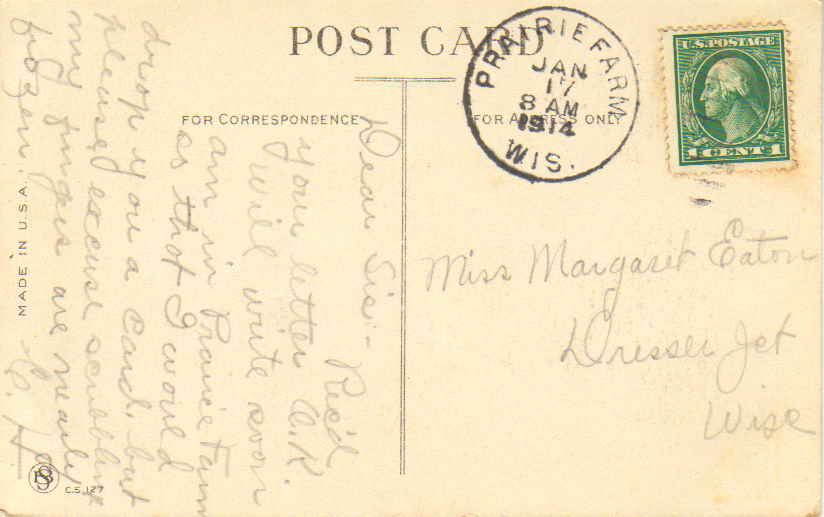 POST CARD
PRAIRIE FARM
JAN
17
8 AM
1914
WIS.
U.S. POSTAGE
1 CENT 1
FOR CORRESPONDENCE
FOR ADDRESS ONLY
Dear Sis:-
Rec'd
your letter O.K.
Will write soon
am in Prairie Farm
so that I would
drop you a card, but
please excuse scribbling
my fingers are nearly
frozen
Miss Margaret Eaton
Dresser Jct
Wisc
MADE IN U.S.A.
C.S. 127